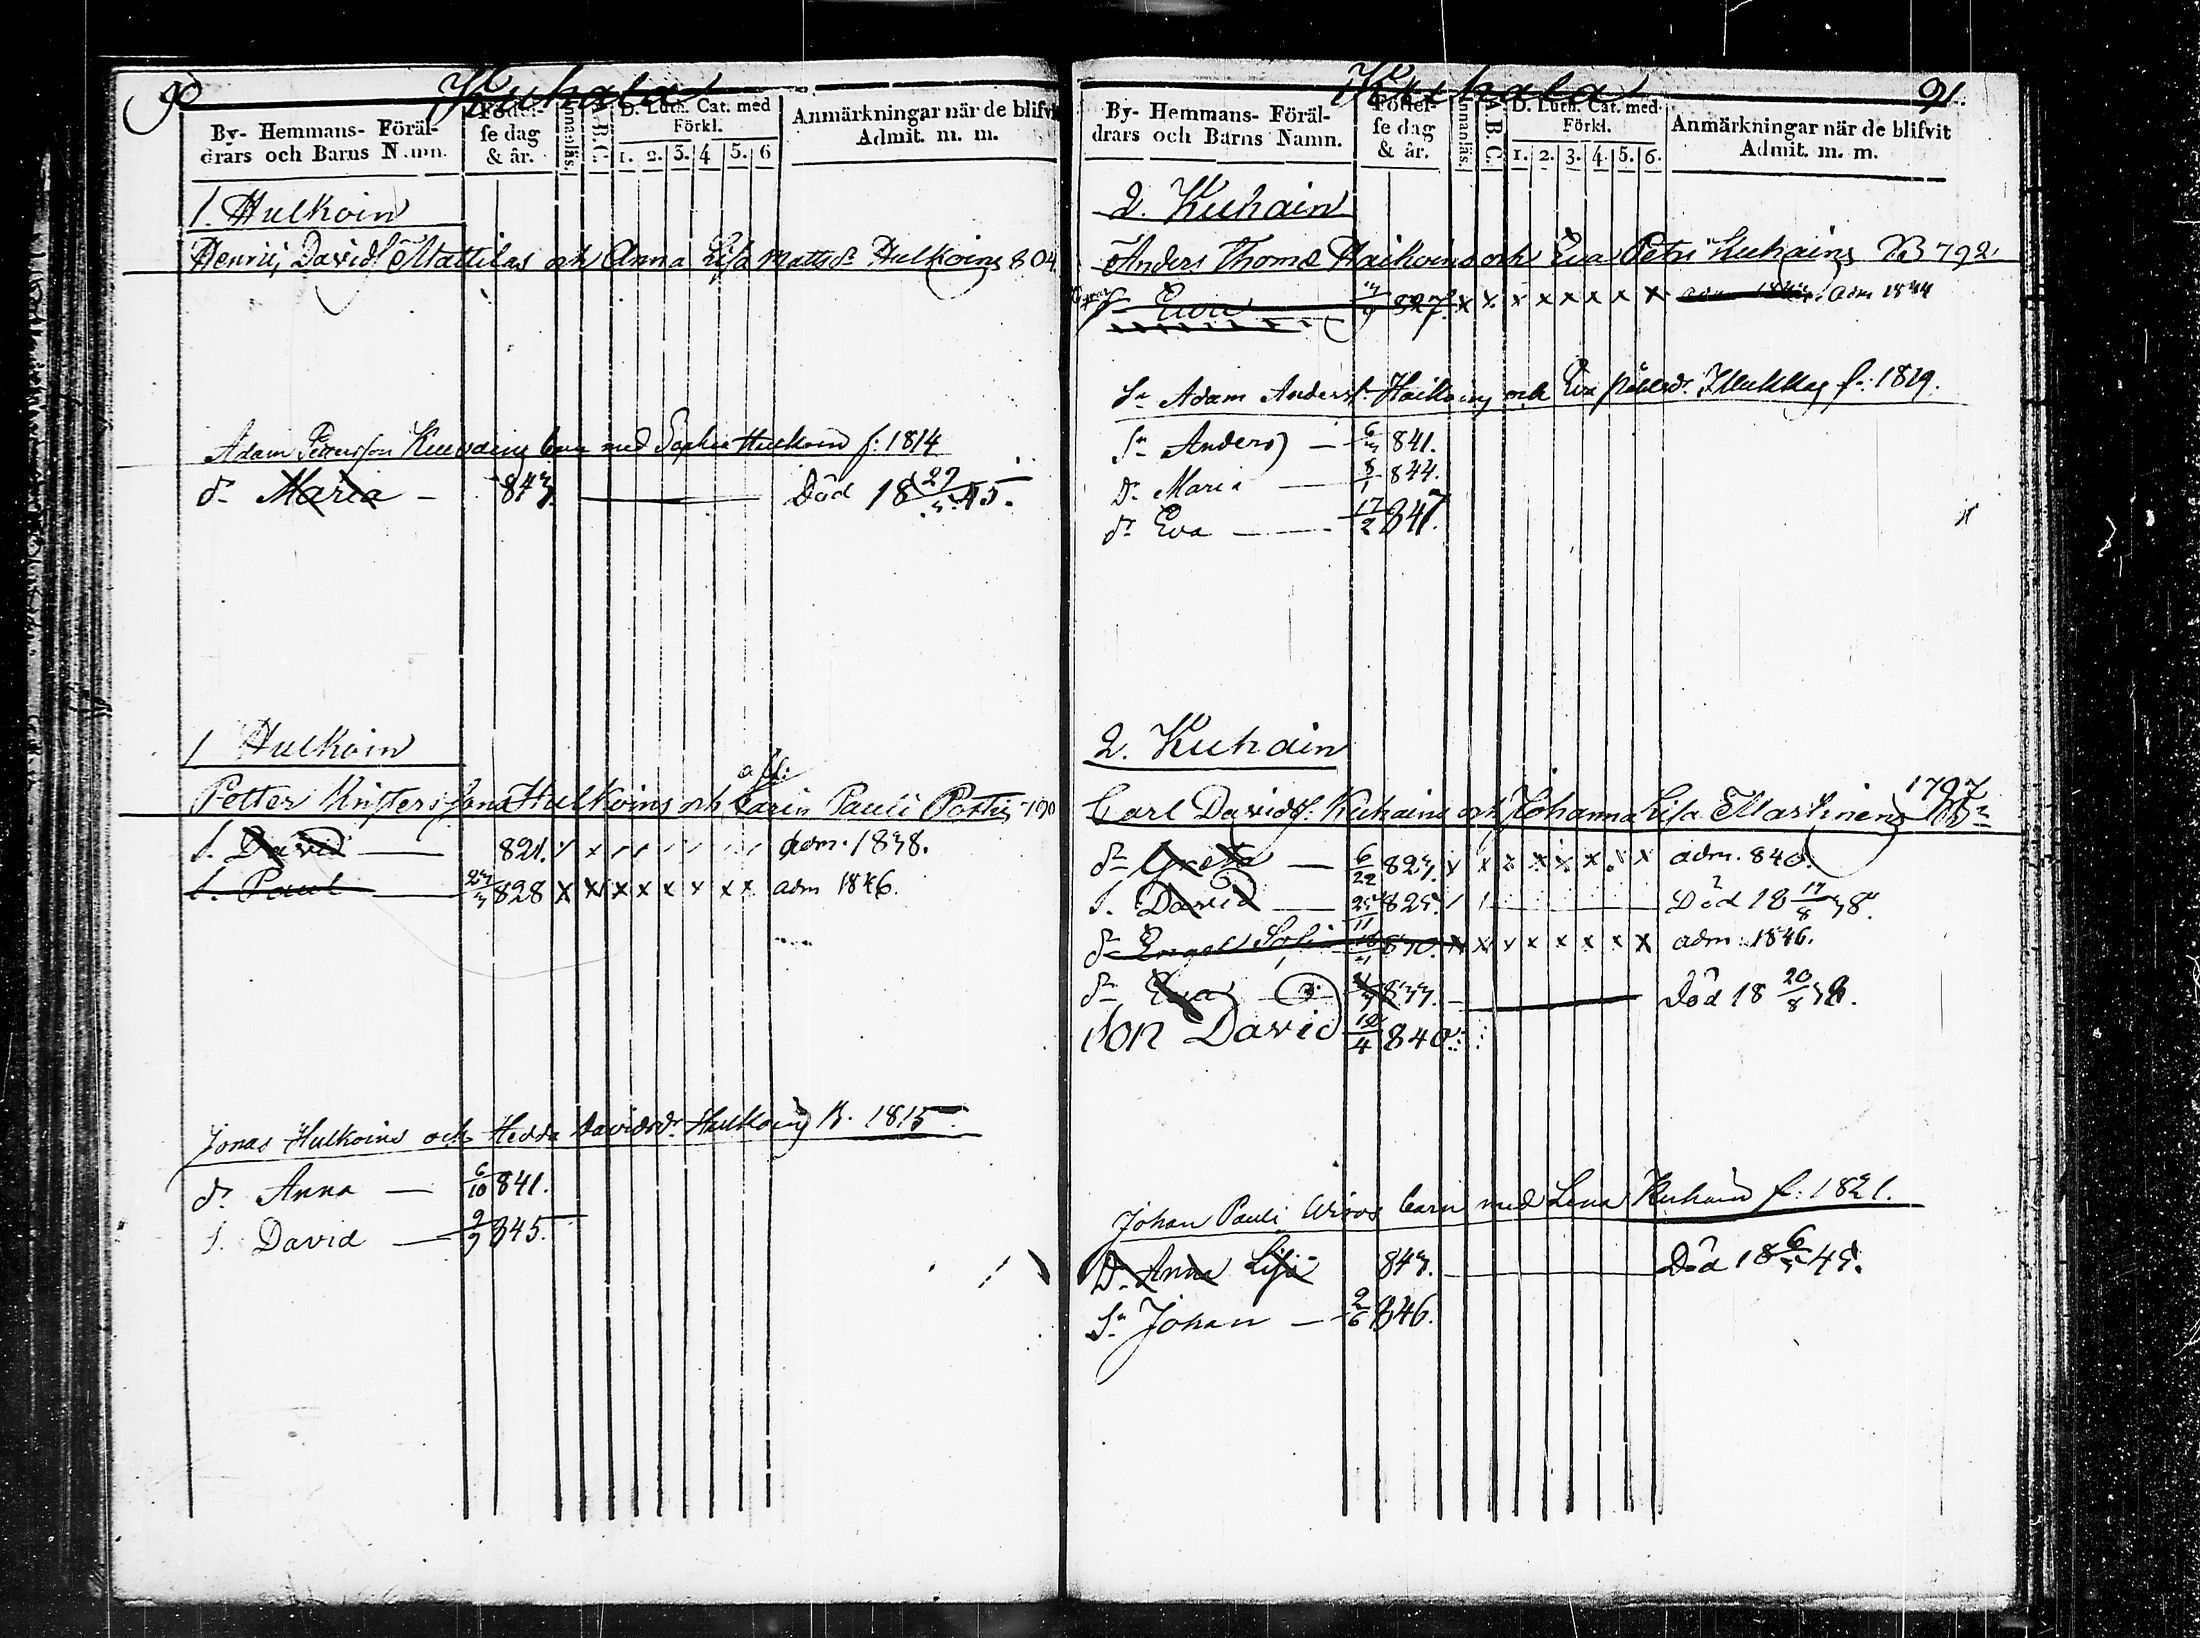 90
Kuhala
By- Hemmans- Föräl-
drars och Barns Namn.
Födel-
se dag
& år.
Innanläs.
A.B.C.
D. Luth. Cat. med
Förkl.
1. 2. 3. 4 5. 6
Anmärkningar när de blifvit
Admit. m. m.
1. Hulkoin
Henric Davids. Mattilas och Anna Lisa Mattsdr Hulkoins 804
Adam Kuusains barn med Sophia Hulkoin f: 1814
dr Maria — 843. — Död 18 27/5 45.
1 Hulkoin
Petter Hulkoins och Carin Pauli
S. David — 821. adm. 1838.
S. Paul — 828 x x x x x x x x adm 1846.
Jonas Hulkoins och Hedda Davidsdr Hulkoins B. 1815
dr Anna — 6/10 841.
S. David — 2/7 845.
91.
Kuhala
By- Hemmans- Föräl-
drars och Barns Namn.
Födel-
se dag
& år.
Innanläs.
A.B.C.
D. Luth. Cat. med
Förkl.
1. 2. 3. 4. 5. 6.
Anmärkningar när de blifvit
Admit. m. m.
2. Kuhain
Anders Thomæ Haikoins och Eva Petri Kuhains 792
Eva 827. x x x x x x x x adm 1844
Sn Adam Anders. Haikoins och Eva f: 1819.
Sn Anders — 841.
Dr Maria — 8/1 844.
dr Eva — 17/2 847.
2. Kuhain
1797
Carl Davids. Kuhains och Johanna Lisa Martinens
dr Greta — 6/22 823. x x x x x x x x adm. 840.
S. David — 825. — Död 18 17/8 38.
dr Engel Sofia x x x x x x x x adm: 1846.
dr Eva 833. — Död 18 20/8 38.
Son David 10/4 840.
Johan Pauli barn med Lena Kuhain f: 1821.
D. Anna Lisa 843. — Död 18 45.
Sn Johan — 2/6 846.